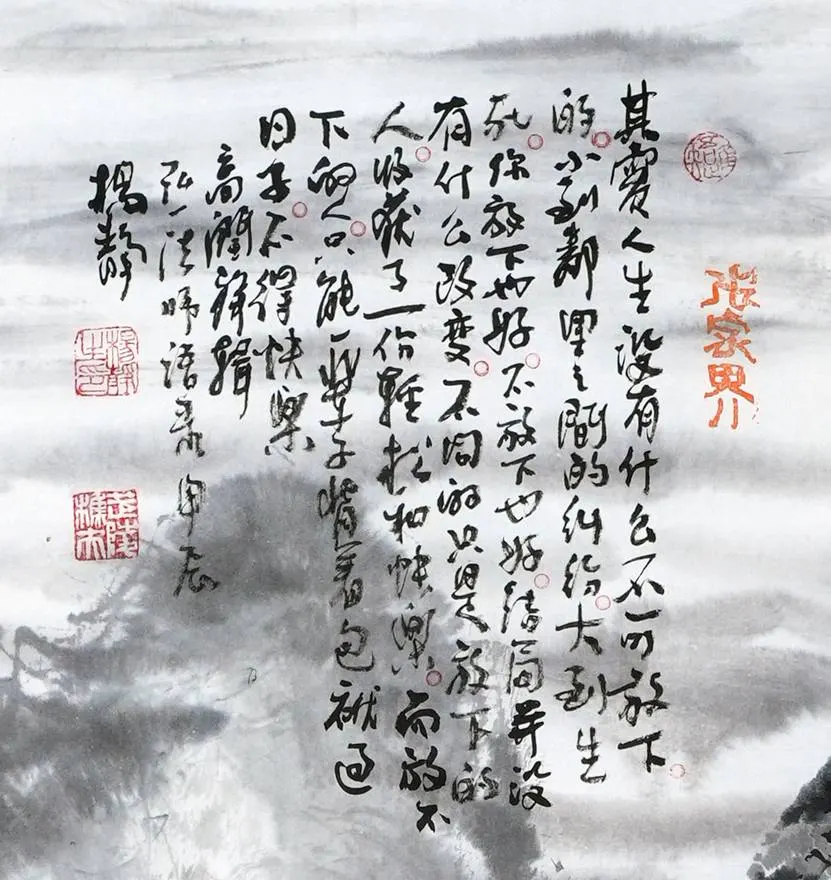 张家界
其實人生没有什么不可放下
的小到鄰里之間的糾紛大到生
死你放下也好不放下也好結局并没
有什么改變不同的只是放下的
人收获了一份輕松和快樂而放不
下的人只能一輩子背着包袱過
日子不得快樂
弘一法師語录甲辰
楊靜